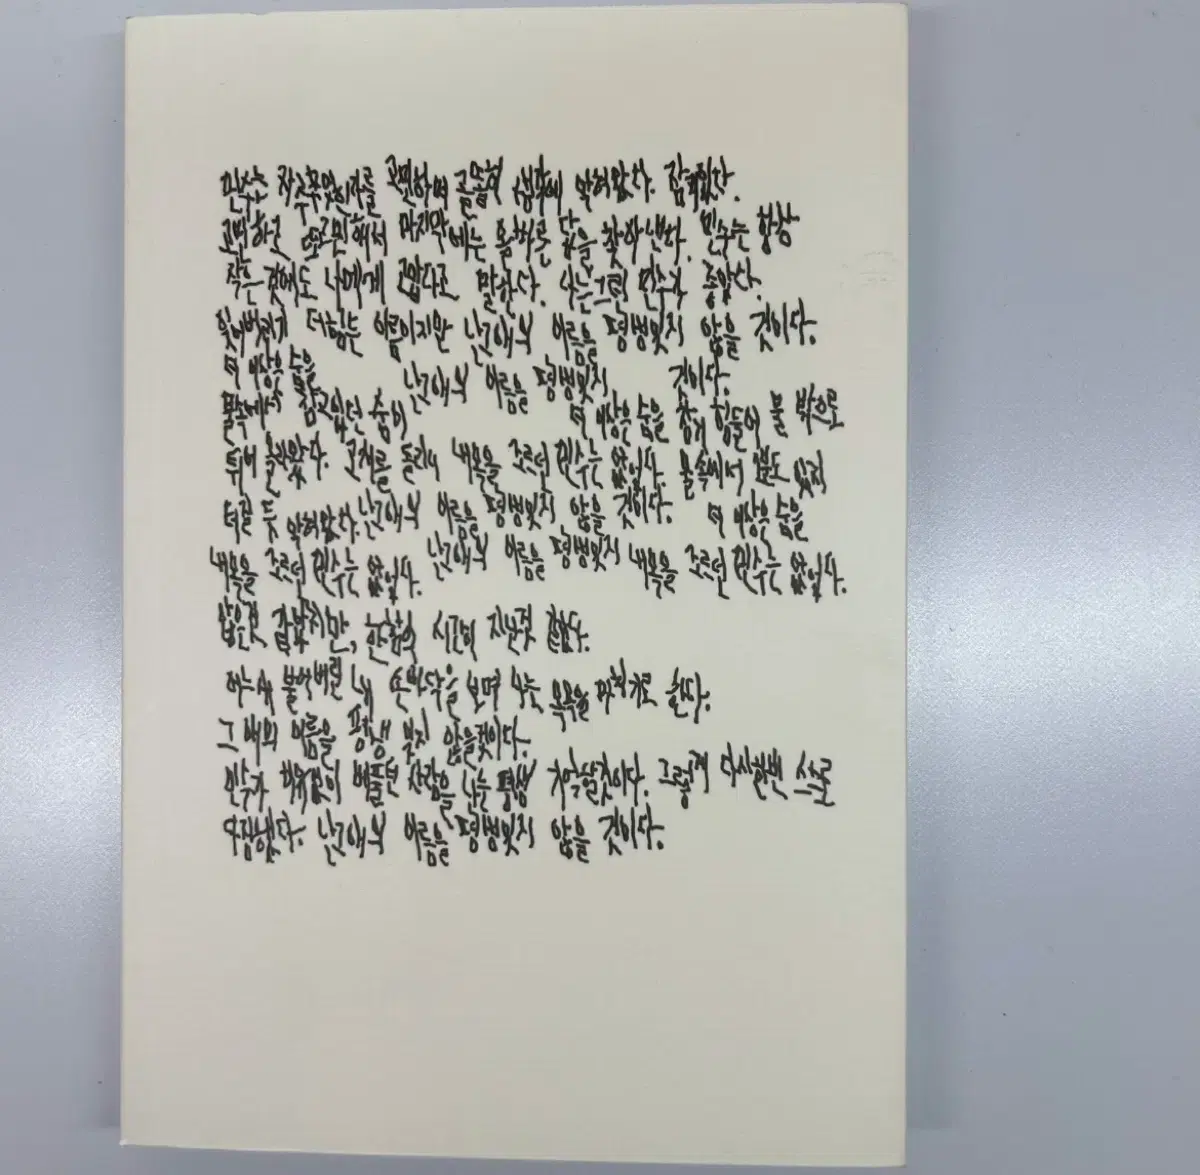 민수는 자주 무엇인가를 고민하며 골똘히 생각에 잠겨있다.
고민하고 또 고민해서 마지막에는 올바른 답을 찾아낸다. 민수는 항상
작은 것에도 나에게 고맙다고 말한다. 나는 그런 민수가 좋았다.
잊어버리기 더 힘든 이름이지만 난 그 애의 이름을 평생 잊지 않을 것이다.
더 이상은 숨을 난 그 애의 이름을 평생 잊지 것이다.
물속에서 참고 있던 숨이 더 이상은 숨을 참기 힘들어 물 밖으로
튀어 올라왔다. 고개를 돌리니 내 목을 조르던 민수는 없었다. 물속에서
터질 듯 난 그 애의 이름을 평생 잊지 않을 것이다. 더 이상은 숨을
내 목을 조르던 민수는 없었다. 난 그 애의 이름을 평생 잊지 내 목을 조르던 민수는 없었다.
같지만, 한참의 시간이 지난 것 같았다.
어느새 불어버린 내 손바닥을 보며 나는 목욕을 마치기로 한다.
그 애의 이름을 평생 잊지 않을 것이다.
민수가 베풀던 사랑을 나는 평생 기억할 것이다. 그렇게 다시 한번 스스로
다짐했다. 난 그 애의 이름을 평생 잊지 않을 것이다.